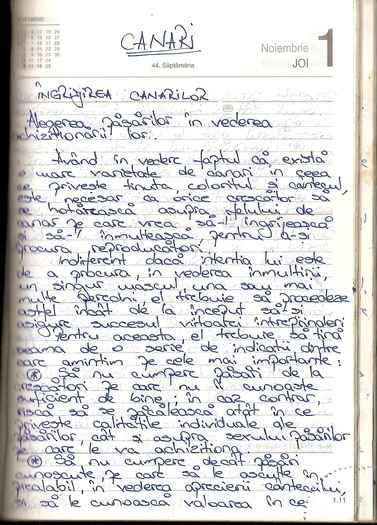 CANARI
Noiembrie 1
JOI
44. Săptămâna
ÎNGRIJIREA CANARILOR
Alegerea păsărilor în vederea
achiziționării lor.
Având în vedere faptul că, există
o mare varietate de canari în ceea
ce privește ținuta, coloritul și cântecul,
este necesar ca orice crescător să
se hotărească asupra felului de
canar pe care vrea să-l îngrijească
și să-l înmulțească pentru a-și
procura reproducători.
Indiferent dacă intenția lui este
de a procura, în vederea înmulțirii,
un singur mascul, una sau mai
multe perechi, el trebuie să procedeze
astfel încât de la început să-și
asigure succesul viitoarei întreprinderi.
Pentru aceasta, el trebuie să țină
seama de o serie de indicații dintre
care amintim pe cele mai importante:
* Să nu cumpere păsări de la
crescători pe care nu îi cunoaște
suficient de bine, în caz contrar,
riscă să se păcălească atât în ce
privește calitățile individuale ale
păsărilor, cât și asupra sexului păsărilor
pe care le va achiziționa.
* Să nu cumpere decât păsări
cunoscute, pe care să le asculte în
prealabil, în vederea aprecierii cântecului
și să le cunoască valoarea în ce
1.11